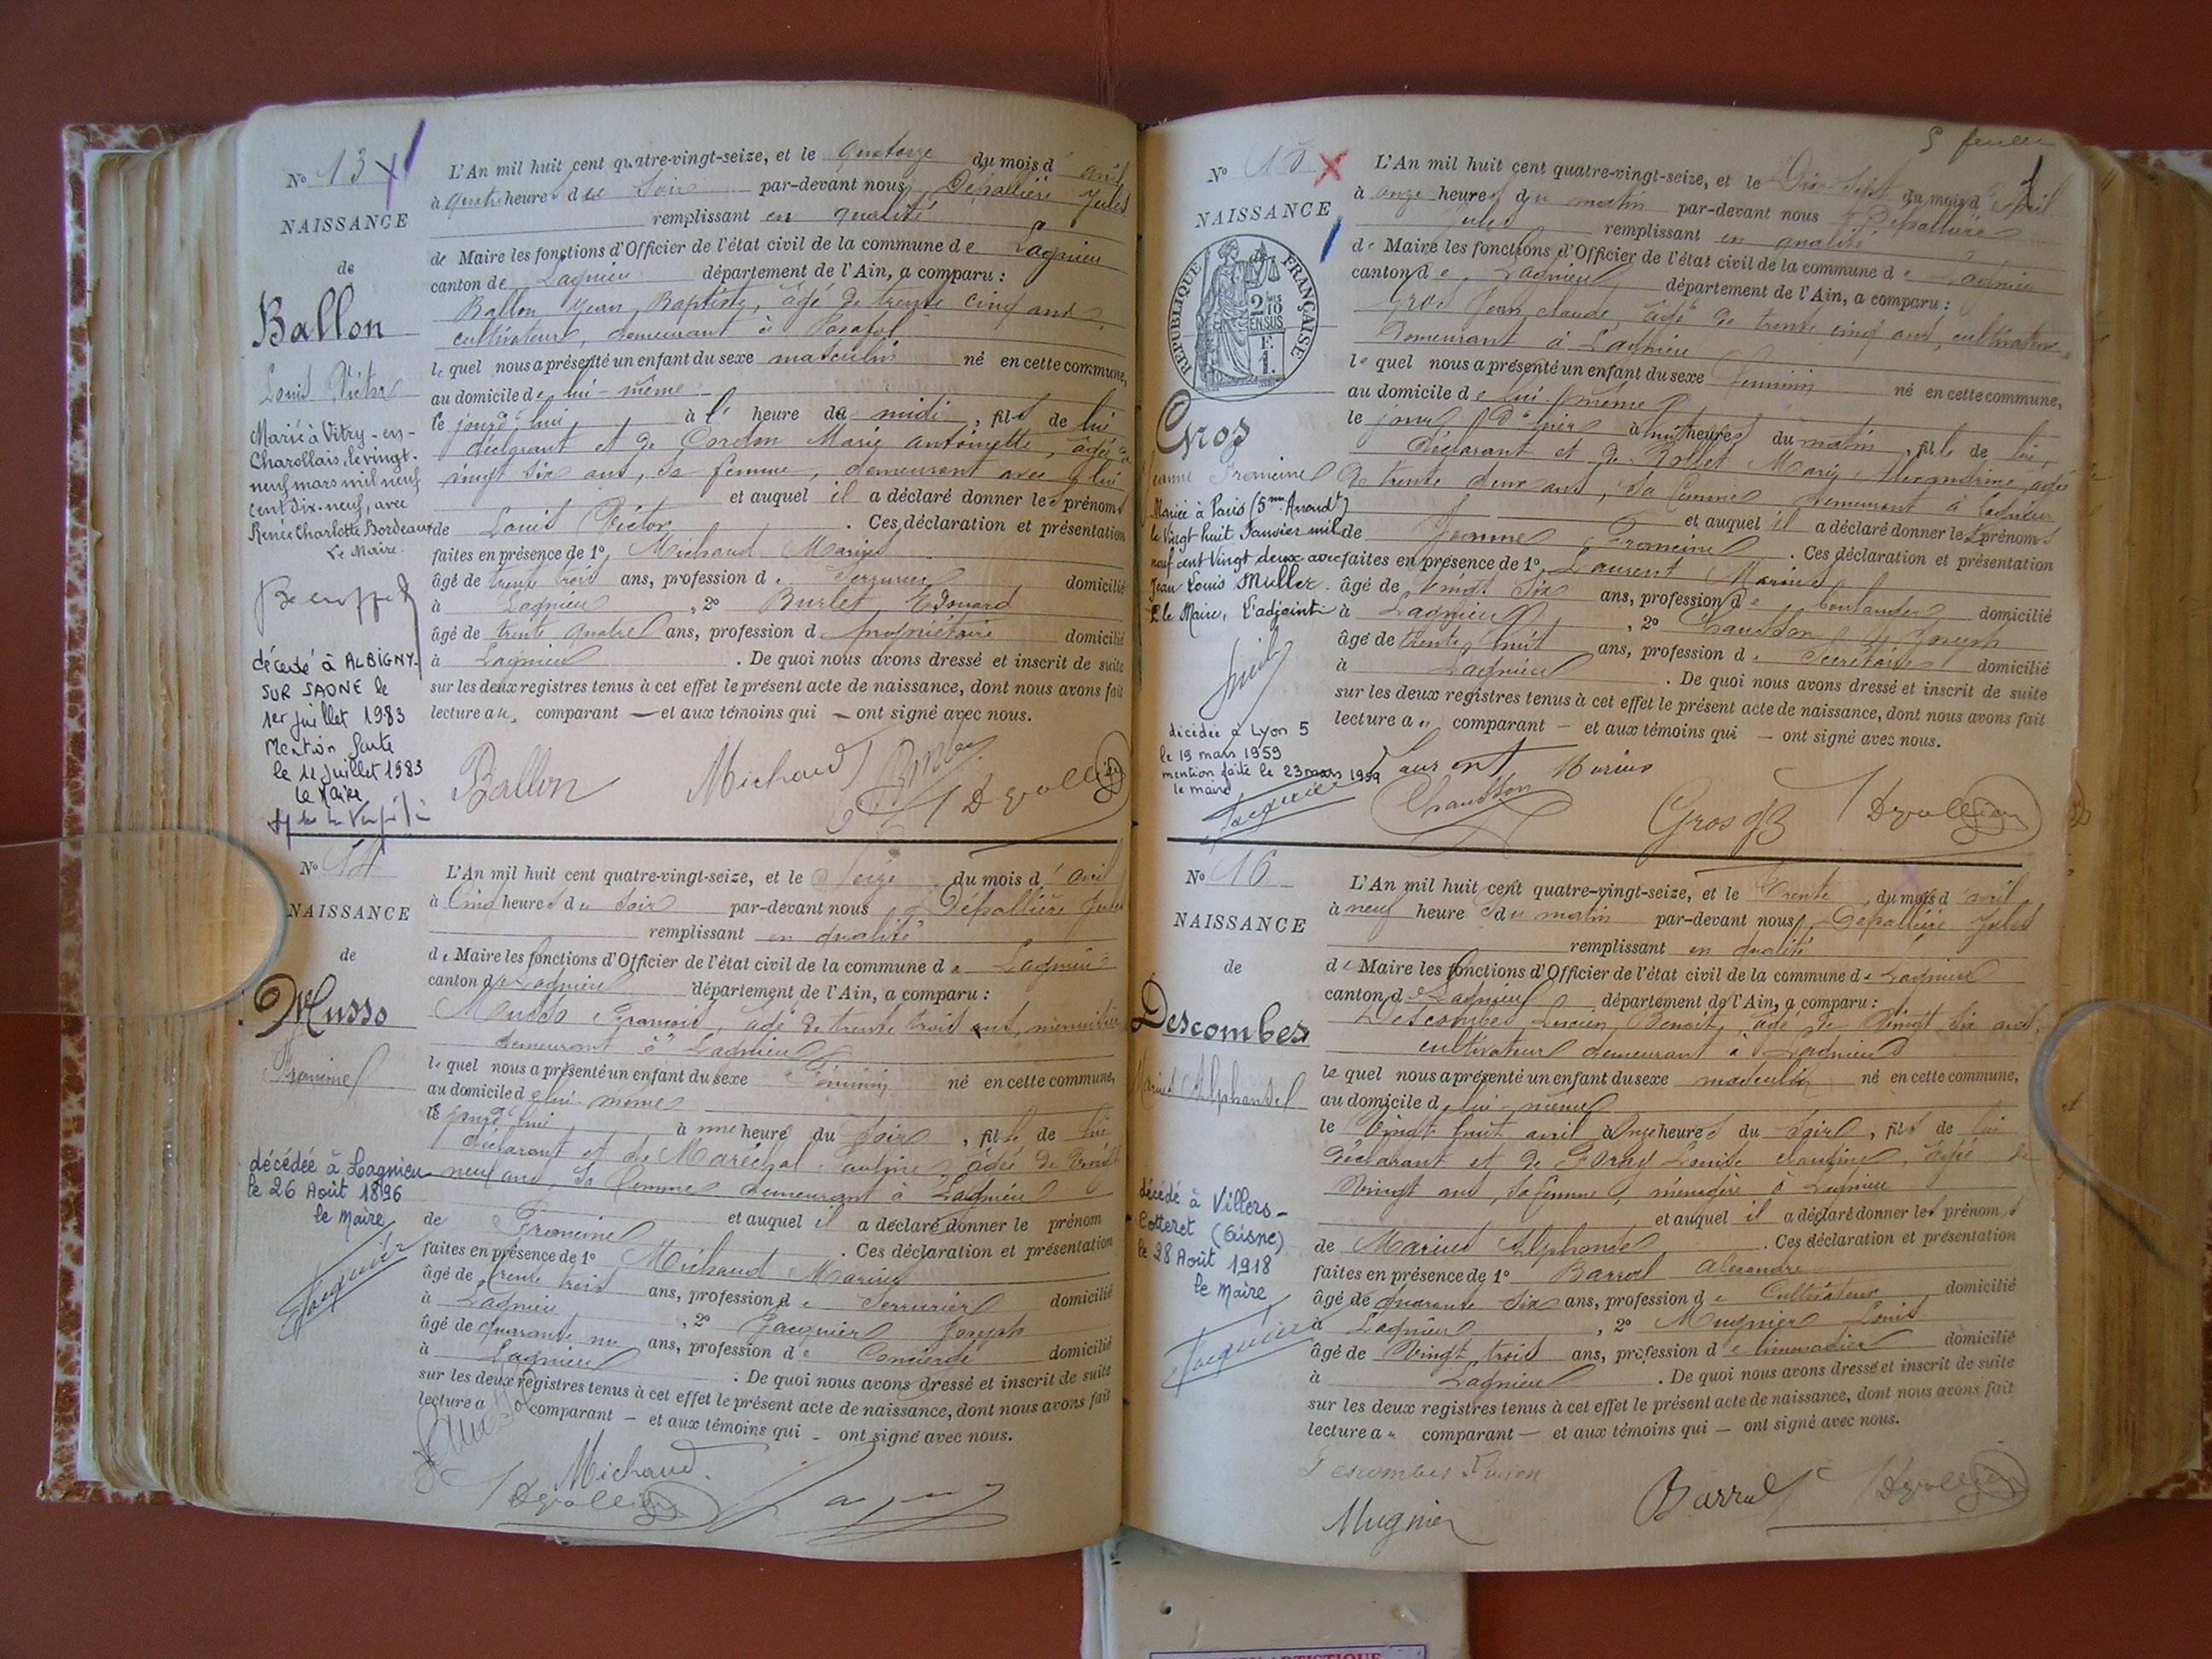 No 13
NAISSANCE
de
Ballon
Louis Victor
Marié à Vitry-en-
Charollais, le vingt-
neuf mars mil neuf
cent dix-neuf, avec
Renée Charlotte Bordeaux
Le Maire
décédé à ALBIGNY-
SUR SAONE le
1er juillet 1983
Mention faite
le 11 juillet 1983
le Maire
L'An mil huit cent quatre-vingt-seize, et le quatorze du mois d'avril
à quatre heures du soir par-devant nous Dépallière Jules
remplissant en qualité
de Maire les fonctions d'Officier de l'état civil de la commune de Lagnieu
canton de Lagnieu département de l'Ain, a comparu :
Ballon Jean Baptiste, âgé de trente cinq ans,
cultivateur, demeurant à Posafol
lequel nous a présenté un enfant du sexe masculin né en cette commune,
au domicile de lui-même
le jourd'hui à l' heure de midi, fils de lui
déclarant et de Cordon Marie Antoinette, âgée de
vingt six ans, sa femme, demeurant avec lui
et auquel il a déclaré donner les prénoms
de Louis Victor. Ces déclaration et présentation
faites en présence de 1° Michaud Marius
âgé de trente trois ans, profession de Serrurier domicilié
à Lagnieu, 2° Burlet Edouard
âgé de trente quatre ans, profession de propriétaire domicilié
à Lagnieu. De quoi nous avons dressé et inscrit de suite
sur les deux registres tenus à cet effet le présent acte de naissance, dont nous avons fait
lecture au comparant — et aux témoins qui — ont signé avec nous.
Ballon Michaud Depallière
No 14
NAISSANCE
de
Musso
Francine
décédée à Lagnieu
le 26 Août 1896
le Maire
Jacquier
L'An mil huit cent quatre-vingt-seize, et le Seize du mois d'avril
à Cinq heures du soir par-devant nous Dépallière Jules
remplissant en qualité
de Maire les fonctions d'Officier de l'état civil de la commune de Lagnieu
canton de Lagnieu département de l'Ain, a comparu :
Musso François, âgé de trente trois ans, menuisier
demeurant à Lagnieu
lequel nous a présenté un enfant du sexe Féminin né en cette commune,
au domicile de lui-même
le jourd'hui à une heure du soir, fille de lui
déclarant et de Maréchal Pauline, âgée de vingt
neuf ans, sa femme demeurant à Lagnieu
et auquel il a déclaré donner le prénom
de Francine. Ces déclaration et présentation
faites en présence de 1° Michaud Marius
âgé de trente trois ans, profession de Serrurier domicilié
à Lagnieu, 2° Jacquier Joseph
âgé de quarante un ans, profession de Concierge domicilié
à Lagnieu. De quoi nous avons dressé et inscrit de suite
sur les deux registres tenus à cet effet le présent acte de naissance, dont nous avons fait
lecture a comparant — et aux témoins qui — ont signé avec nous.
Michaud
Depallière
5 février
No 15
NAISSANCE
RÉPUBLIQUE FRANÇAISE
2/10 EN SUS
F. 1.
Gros
Jeanne Francine
Mariée à Paris (5me Arrondt)
le Vingt huit Janvier mil
neuf cent Vingt deux avec
Jean Louis Muller.
P. le Maire, L'adjoint
décédée à Lyon 5
le 19 mars 1959
mention faite le 23 mars 1959
le maire
Jacquier
L'An mil huit cent quatre-vingt-seize, et le Dix-Sept du mois d'avril
à onze heures du matin par-devant nous Dépallière
Jules remplissant en qualité
de Maire les fonctions d'Officier de l'état civil de la commune de Lagnieu
canton de Lagnieu département de l'Ain, a comparu :
Gros Jean Claude, âgé de trente cinq ans, cultivateur
demeurant à Lagnieu
lequel nous a présenté un enfant du sexe féminin né en cette commune,
au domicile de lui-même
le jour d'hier à huit heures du matin, fille de lui
déclarant et de Rollet Marie Alexandrine, âgée
de trente deux ans, sa femme demeurant à Lagnieu
et auquel il a déclaré donner les prénoms
de Jeanne Francine. Ces déclaration et présentation
faites en présence de 1° Laurent Marius
âgé de vingt six ans, profession de boulanger domicilié
à Lagnieu, 2° Chausson Joseph
âgé de trente huit ans, profession de Secrétaire domicilié
à Lagnieu. De quoi nous avons dressé et inscrit de suite
sur les deux registres tenus à cet effet le présent acte de naissance, dont nous avons fait
lecture au comparant — et aux témoins qui — ont signé avec nous.
Laurent Marius
Chausson Gros Depallière
No 16
NAISSANCE
de
Descombes
Marius Alphonse
décédé à Villers-
Cotteret (Aisne)
le 28 Août 1918
le Maire
Jacquier
L'An mil huit cent quatre-vingt-seize, et le Trente du mois d'avril
à neuf heures du matin par-devant nous Dépallière Jules
remplissant en qualité
de Maire les fonctions d'Officier de l'état civil de la commune de Lagnieu
canton de Lagnieu département de l'Ain, a comparu :
Descombes Lucien Benoit, âgé de vingt six ans,
cultivateur demeurant à Lagnieu
lequel nous a présenté un enfant du sexe masculin né en cette commune,
au domicile de lui-même
le Vingt huit avril à onze heures du soir, fils de lui
déclarant et de Forny Louise Claudine, âgée de
vingt ans, sa femme, ménagère à Lagnieu
et auquel il a déclaré donner les prénoms
de Marius Alphonse. Ces déclaration et présentation
faites en présence de 1° Barral Alexandre
âgé de quarante six ans, profession de Cultivateur domicilié
à Lagnieu, 2° Mugnier Louis
âgé de Vingt trois ans, profession de limonadier domicilié
à Lagnieu. De quoi nous avons dressé et inscrit de suite
sur les deux registres tenus à cet effet le présent acte de naissance, dont nous avons fait
lecture au comparant — et aux témoins qui — ont signé avec nous.
Descombes Lucien
Mugnier Barral Depallière